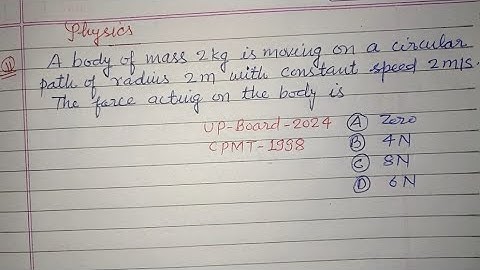 Physics
11 A body of mass 2kg is moving on a circular
path of radius 2m with constant speed 2m/s.
The force acting on the body is
UP-Board-2024 A Zero
CPMT-1998 B 4N
C 8N
D 6N